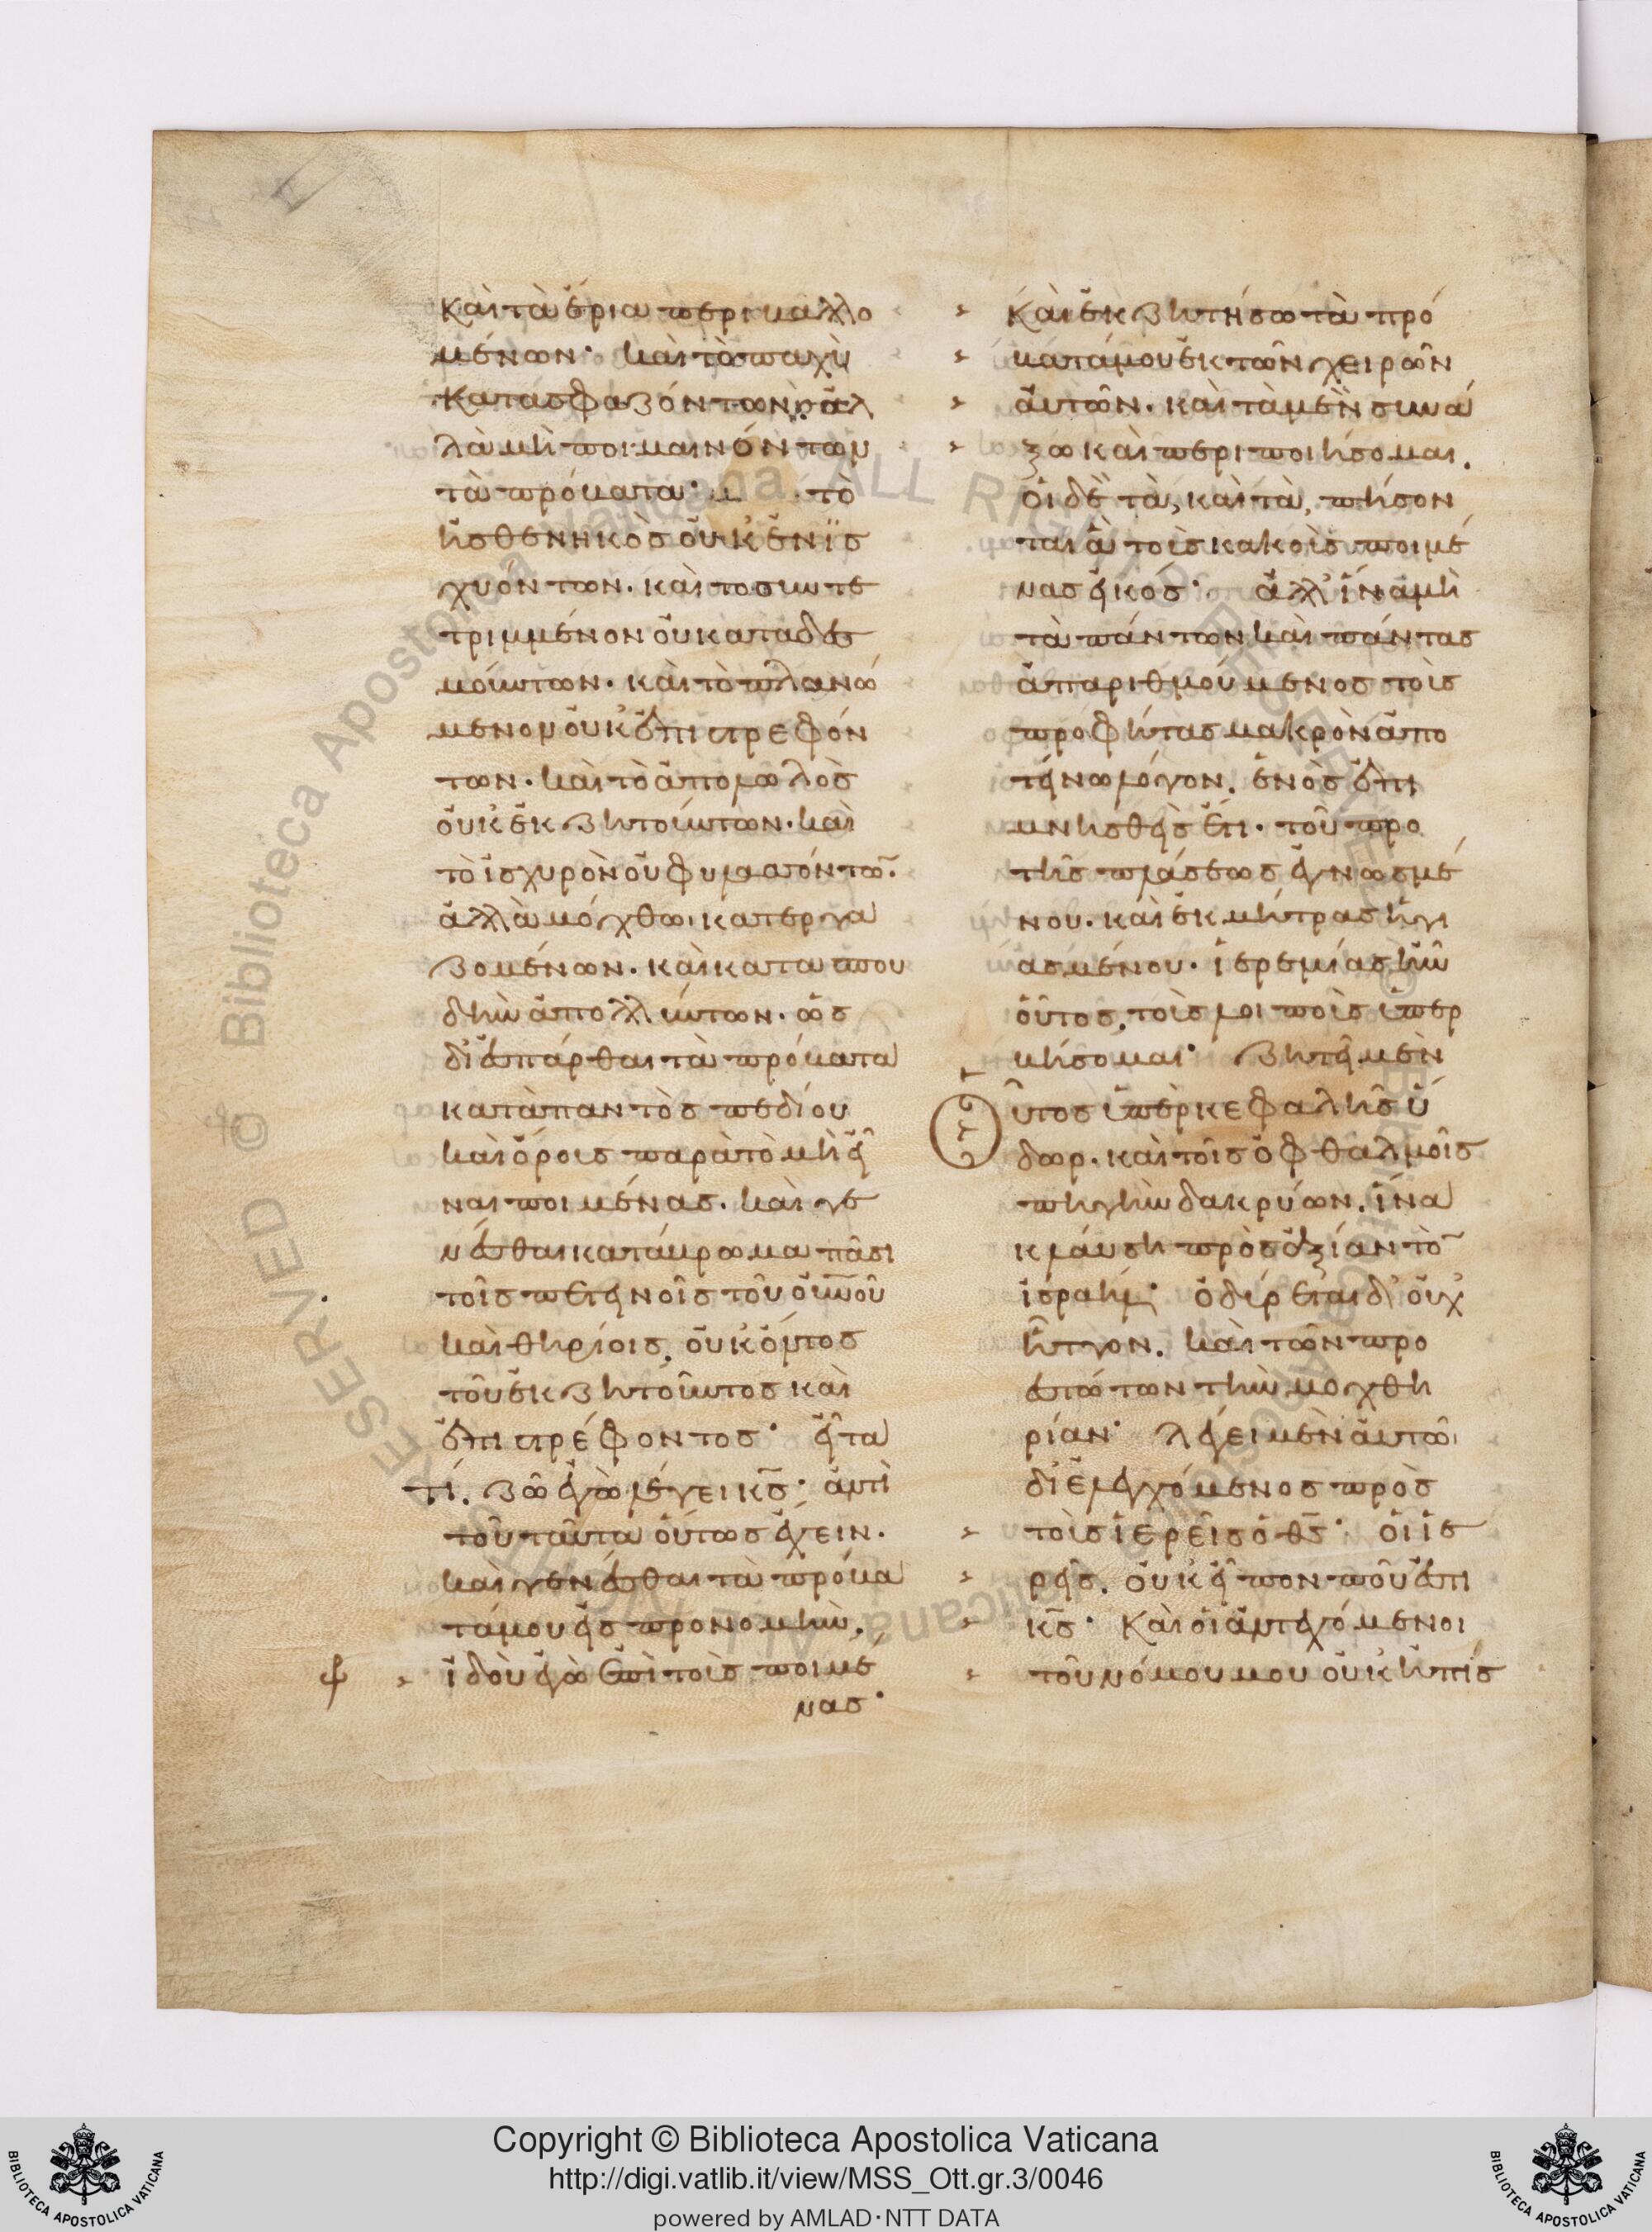 καὶ τὰ ἔρια περιβαλλο
μένων· καὶ τὸ παχὺ
κατασφαζόντων· ἀλ
λὰ μὴ ποιμαινόντων
τὰ πρόβατα· τὸ
ἠσθενηκὸς οὐκ ἐνισ
χυόντων. καὶ τὸ συντε
τριμμένον οὐ καταδεσ
μούντων. καὶ τὸ πλανώ
μενον οὐκ ἐπιστρεφόν
των. καὶ τὸ ἀπολωλὸς
οὐκ ἐκζητούντων. καὶ
τὸ ἰσχυρὸν οὐ φυλαττόντω̄.
ἀλλὰ μόχθωι κατεργα
ζομένων. καὶ κατασπου
δὴν ἀπολλύντων. ὡς
διεσπάρθαι τὰ πρόβατα
κατὰ παντὸς πεδίου
καὶ ὄροις παρὰ τὸ μὴ εἶ
ναι ποιμένας. καὶ γε
νέσθαι κατάβρωμα πᾶσι
τοῖς πετεινοῖς τοῦ οὐνοῦ
καὶ θηρίοις, οὐκ ὄντος
τοῦ ἐκζητοῦντος καὶ
ἐπιστρέφοντος· εἶτα
τί. ζῶ ἐγὼ λέγει κς· ἀντὶ
τοῦ ταῦτα οὕτως ἔχειν.
καὶ γενέσθαι τὰ πρόβα
τά μου εἰς προνομὴν,
ἰδοὺ ἐγὼ ἐπὶ τοὺς ποιμέ
νας·
καὶ ἐκζητήσω τὰ πρό
βατά μου ἐκ τῶν χειρῶν
αὐτῶν. καὶ τὰ μὲν συνά
ξω καὶ περιποιήσομαι.
οἱ δὲ τὰ, καὶ τὰ, πείσον
ται ἃ τοὺς κακοὺς ποιμέ
νας εἰκός· ἀλλ' ἵνα μὴ
τὰ πάντων καὶ πάντας
ἀπαριθμούμενος τοὺς
προφήτας μακρὸν ἀπο
τείνω λόγον. ἑνὸς ἐπι
μνησθεὶς ἔτι. τοῦ πρὸ
τῆς πλάσεως ἐγνωσμέ
νου. καὶ ἐκ μήτρας ἡγι
ασμένου. ἱερεμίας ἦν
οὗτος, τοὺς λοιποὺς ὑπερ
βήσομαι· ζητεῖ μὲν
οὗτος ὑπὲρ κεφαλῆς ὕ
δωρ. καὶ τοῖς ὀφθαλμοῖς
πηγὴν δακρύων. ἵνα
κλαύσῃ πρὸς ἀξίαν τὸ̄
ἰσραήλ· ὀδύρεται δ' οὐχ
ἧττον. καὶ τῶν προ
εστώτων τὴν μοχθη
ρίαν· λέγει μὲν αὐτῶι
διελεγχόμενος πρὸς
τοὺς ἱερεῖς ὁ θς· οἱ ἱε
ρεῖς. οὐκ εἶπον ποῦ ἐστι
κς· καὶ οἱ ἀντεχόμενοι
τοῦ νόμου μου οὐκ ἠπίσ
Copyright © Biblioteca Apostolica Vaticana
http://digi.vatlib.it/view/MSS_Ott.gr.3/0046
powered by AMLAD·NTT DATA